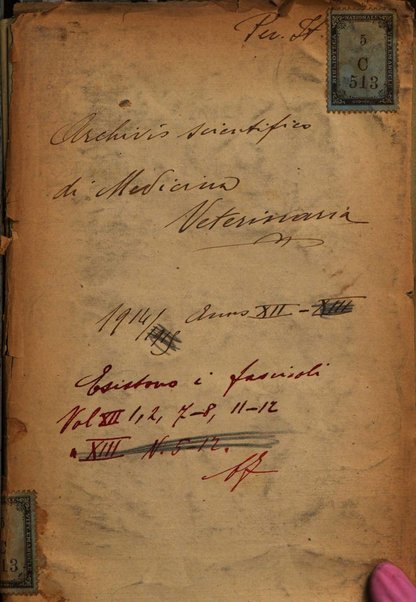 Per. It
5
C
513
Archivio scientifico
di Medicina
Veterinaria
1914/1915 Anno XII - XIII
Esistono i fascicoli
Vol XII 1, 2, 7-8, 11-12
" XIII N. 5-12.
13